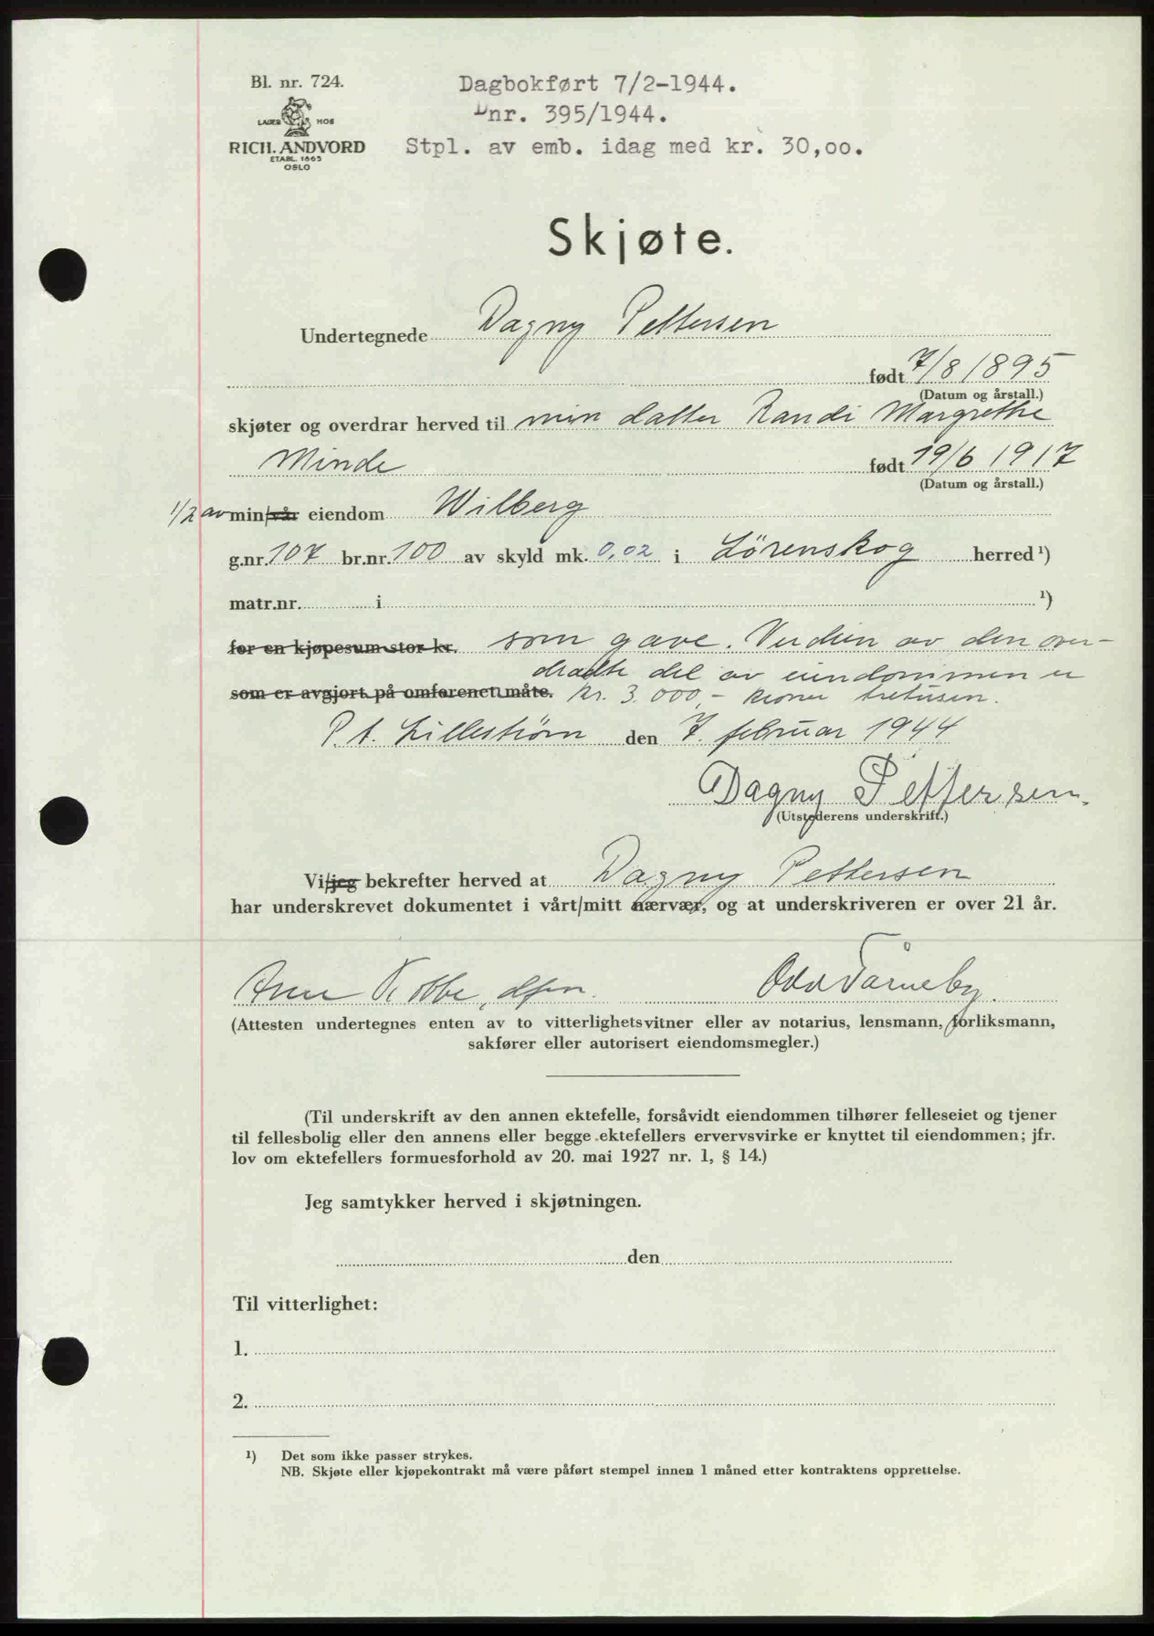 Bl. nr. 724.
LAGER HOS
RICH. ANDVORD
ETABL. 1865
OSLO
Dagbokført 7/2-1944.
Dnr. 395/1944.
Stpl. av emb. idag med kr. 30,oo.
Skjøte.
Undertegnede Dagny Pettersen
født 7/8 1895
(Datum og årstall.)
skjøter og overdrar herved til min datter Randi Margrethe
Minde født 19/6 1917
(Datum og årstall.)
1/2 av min/vår eiendom Wilberg
g.nr. 107 br.nr. 100 av skyld mk. 0,02 i Lørenskog herred ¹)
matr.nr. i ¹)
for en kjøpesum stor kr. som gave. Verdien av den over-
dradte del av eiendommen er
som er avgjort på omførenet måte. kr. 3.000,- kroner tretusen.
P.t. Lillestrøm den 7. februar 1944
Dagny Pettersen.
(Utstederens underskrift.)
Vi/jeg bekrefter herved at Dagny Pettersen
har underskrevet dokumentet i vårt/mitt nærvær, og at underskriveren er over 21 år.
Odd Tårneby.
(Attesten undertegnes enten av to vitterlighetsvitner eller av notarius, lensmann, forliksmann,
sakfører eller autorisert eiendomsmegler.)
(Til underskrift av den annen ektefelle, forsåvidt eiendommen tilhører felleseiet og tjener
til fellesbolig eller den annens eller begge ektefellers ervervsvirke er knyttet til eiendommen; jfr.
lov om ektefellers formuesforhold av 20. mai 1927 nr. 1, § 14.)
Jeg samtykker herved i skjøtningen.
den
Til vitterlighet:
1.
2.
¹) Det som ikke passer strykes.
NB. Skjøte eller kjøpekontrakt må være påført stempel innen 1 måned etter kontraktens opprettelse.